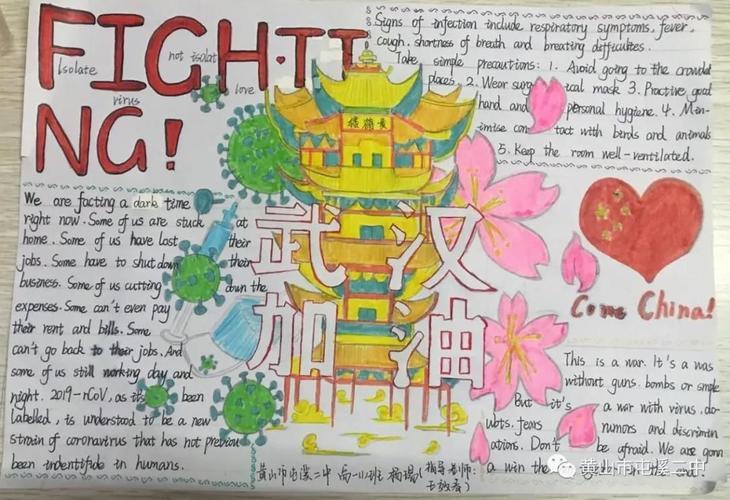 FIGHTI
NG!
Isolate virus not isolat love
Signs of infection include respiratory symptoms, fever,
cough, shortness of breath and breating difficulties.
Take simple precautions: 1. Avoid going to the crowded
places. 2. Wear surgical mask 3. Practive good
hand and personal hygiene. 4. Min-
imise contact with birds and animals
5. Keep the room well-ventilated.
We are facting a dark time
right now. Some of us are stuck at
home. Some of us have lost their
jobs. Some have to shut down their
business. Some of us cutting down the
expenses. Some can't even pay
their rent and bills. Some
can't go back to their jobs. And
some of us still working day and
night. 2019-nCoV, as its been
labelled, is understood to be a new
strain of coronavirus that has not previou
been indentifide in humans.
武汉
加油
Come China!
This is a war. It's a was
without guns. bombs or smoke
But it's a war with virus, do-
ubts. fears rumors and discrimin
ations. Don't be afraid. We are gonn
a win the
黄山市屯溪二中 高一
指导老师:
黄山市屯溪二中